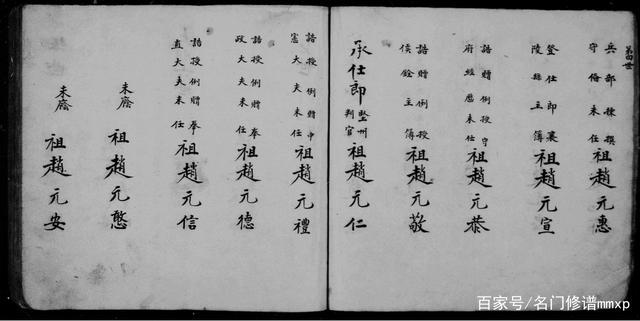 第四世
兵部棟撰守俻未任祖趙元惠
登仕郎襄陵縣主簿祖趙元宣
誥贈例授守府經歷未任祖趙元恭
誥贈例授候銓主簿祖趙元敬
承仕郎 判官祖趙元仁
誥授例贈中憲大夫未任祖趙元禮
誥授例贈奉政大夫未任祖趙元德
誥授例贈奉直大夫未任祖趙元信
未廕祖趙元憨
未廕祖趙元安
百家号/名门修谱mmxp